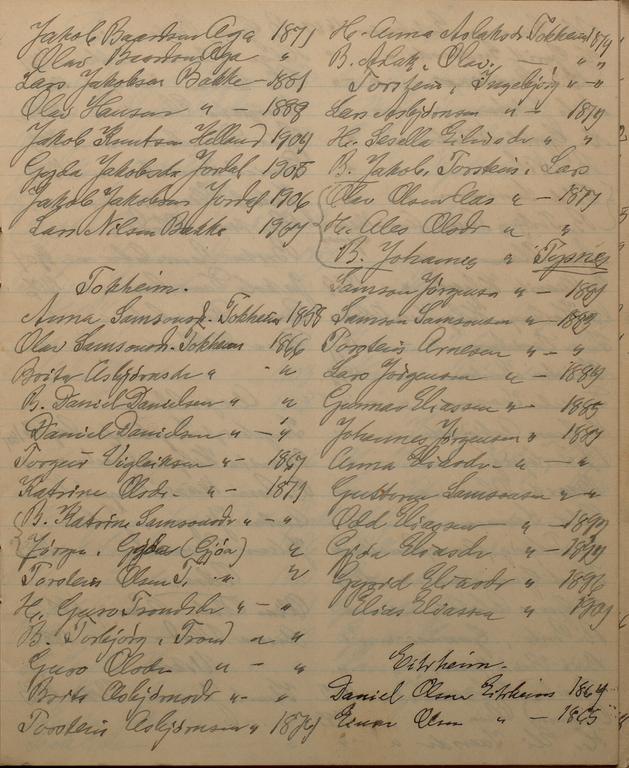 Jakob Baardsen Aga 1871
Olav Baardsen Aga "
Lars Jakobsen Bakke - 1881
Olav Hansen " - 1888
Jakob Knutsen Helland 1904
Gyda Jakobsdr Jordal 1905
Jakob Jakobsen Jordal 1906
Lars Nilsen Bakke 1907
Tokheim.
Anna Samsonsd. Tokheim 1858
Olav Samsonsn. Tokheim 1866
Brita Asbjørnsdr " - "
B. Daniel Danielsen " "
Daniel Danielsen " - "
Torgeir Vigleiksen " - 1867
Katrine Olsdr. " - 1871
B. Katrine Samsonsdr " - "
Jørgen. Gjøa (Gjøa) "
Torstein Olsen T. " "
H. Guro Trondsdr " - "
B. Torbjørg, Trond " "
Guro Olsdr " - "
Brita Asbjørnsdr " - "
Torstein Asbjørnsen " 1874
H. Anna Aslaksdr Tokheim 1874
B. Aslak, Olav, - , " "
Torstein, Ingebjørg " - "
Lars Asbjørnsen " - 1874
H. Sesella Eilivsdr " "
B. Jakob, Torstein, Lars
Olav Olsen Aas " - 1877
H. Ales Olsdr " "
B. Johannes " Tysnes
Samson Jørgensen " - 1881
Samson Samsonsen " - 1883
Torstein Arnesen " - "
Lars Jørgensen " - 1884
Gunnar Eliassen " - 1885
Johannes Jørgensen " 1887
Anna Eliasdr. " - "
Guttorm Samsonsen " "
Odd Eliassen " - 1890
Gjøa Eliasdr. " - 1894
Gyrid Eliasdr " 1896
Elias Eliassen " 1901
Eitrheim.
Daniel Olsen Eitrheim 1864
Einar Olsen " - 1865